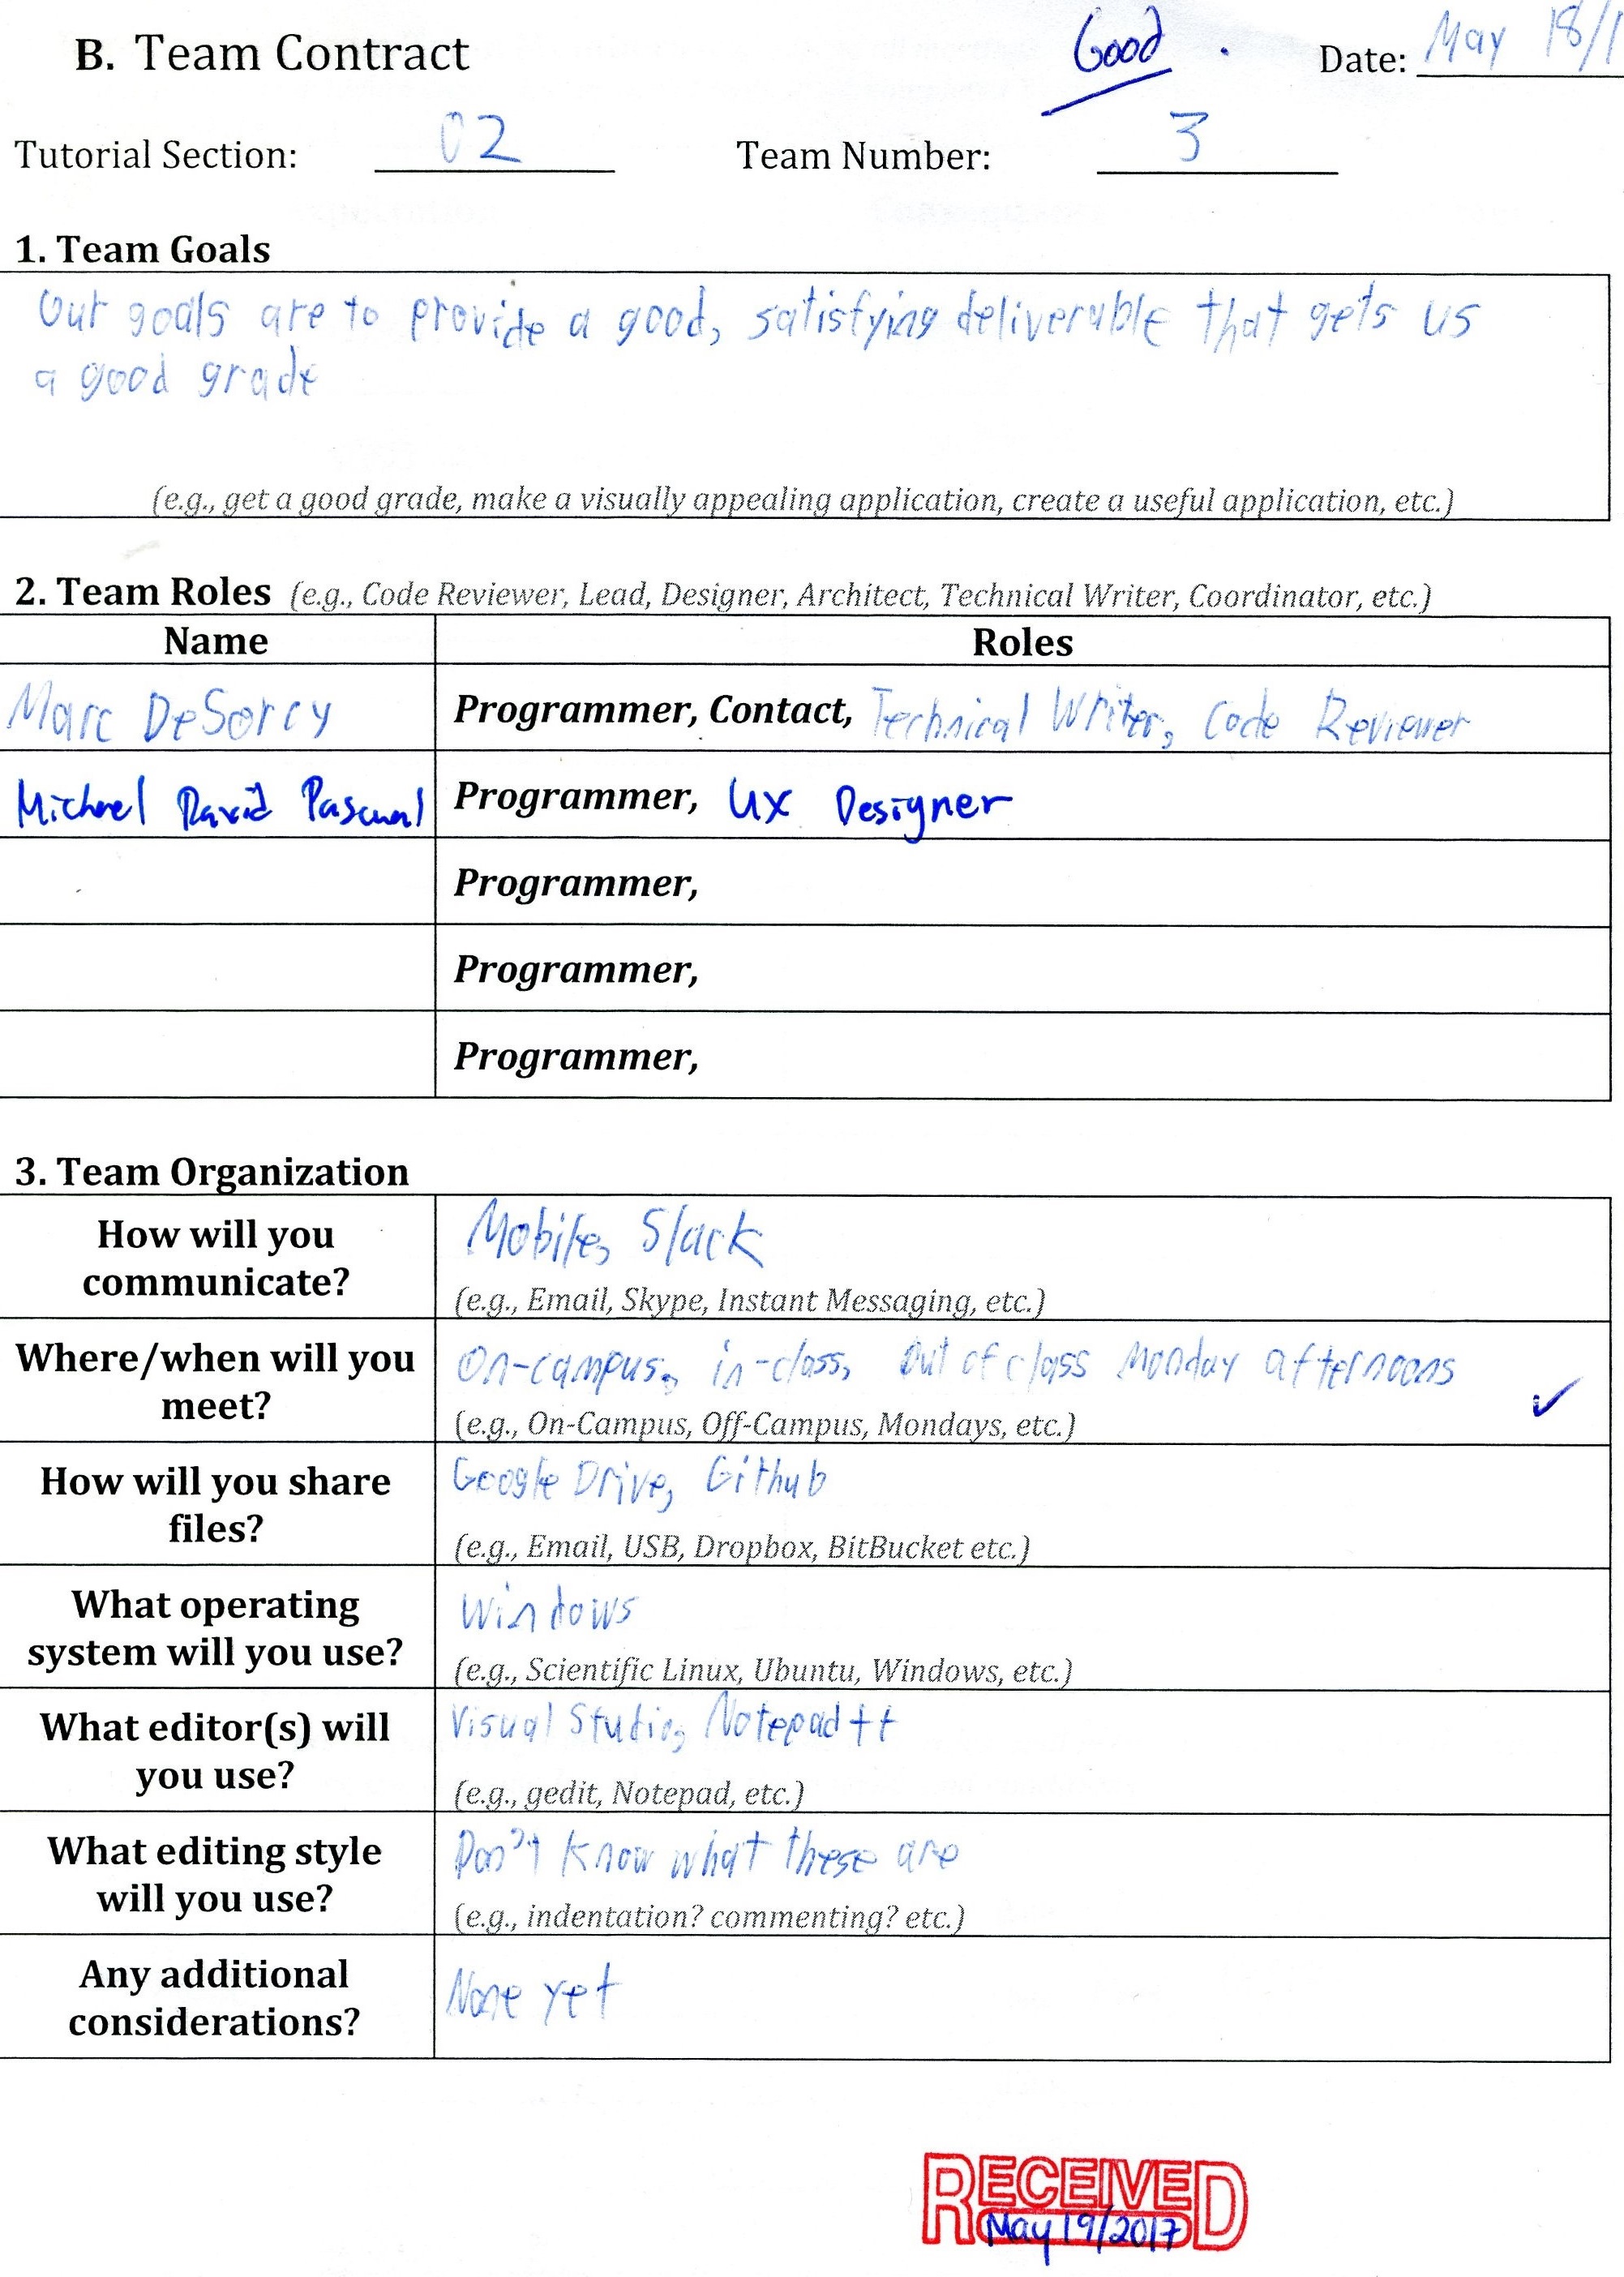 B. Team Contract
Good .
Date: May 18/1
Tutorial Section: 02 Team Number: 3
1. Team Goals
Our goals are to provide a good, satisfying deliverable that gets us
a good grade
(e.g., get a good grade, make a visually appealing application, create a useful application, etc.)
2. Team Roles (e.g., Code Reviewer, Lead, Designer, Architect, Technical Writer, Coordinator, etc.)
Name Roles
Marc DeSorcy Programmer, Contact, Technical Writer, Code Reviewer
Michael David Pascual Programmer, UX Designer
Programmer,
Programmer,
Programmer,
3. Team Organization
How will you
communicate?
Mobile, Slack
(e.g., Email, Skype, Instant Messaging, etc.)
Where/when will you
meet?
On-campus, in-class, out of class Monday afternoons ✓
(e.g., On-Campus, Off-Campus, Mondays, etc.)
How will you share
files?
Google Drive, Github
(e.g., Email, USB, Dropbox, BitBucket etc.)
What operating
system will you use?
Windows
(e.g., Scientific Linux, Ubuntu, Windows, etc.)
What editor(s) will
you use?
Visual Studio, Notepad++
(e.g., gedit, Notepad, etc.)
What editing style
will you use?
Don't know what these are
(e.g., indentation? commenting? etc.)
Any additional
considerations?
None yet
RECEIVED
May 19/2017